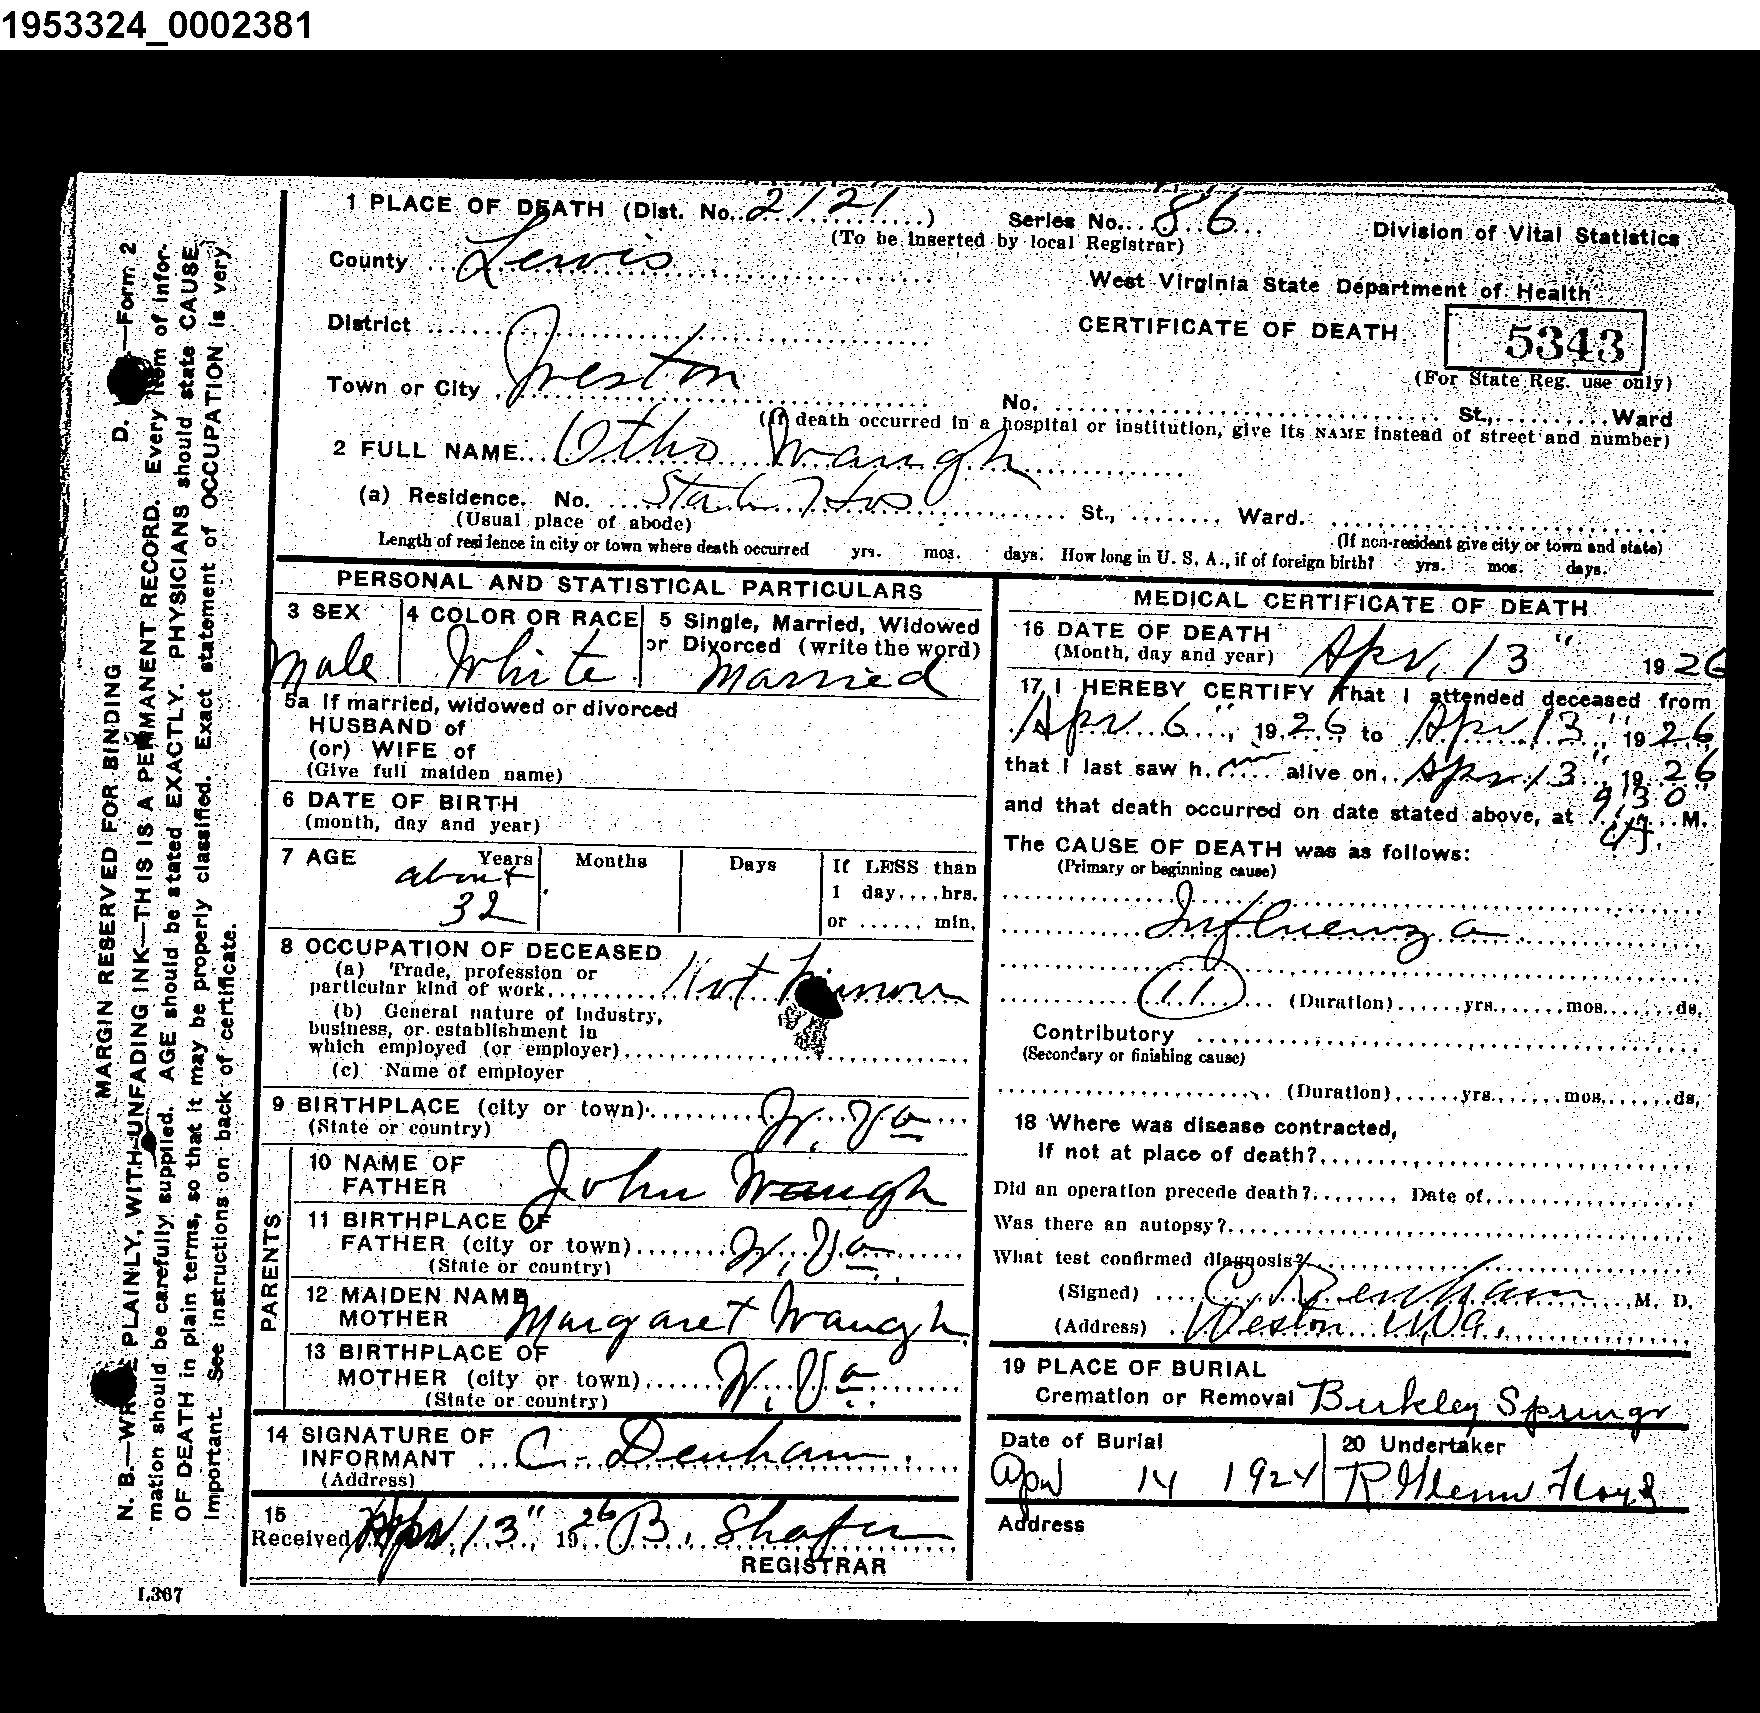 1953324_0002381
1 PLACE OF DEATH (Dist. No. 2121) Series No. 86
(To be inserted by local Registrar)
Division of Vital Statistics
County Lewis
West Virginia State Department of Health
District
CERTIFICATE OF DEATH
5343
(For State Reg. use only)
Town or City Weston
No. St., Ward
(If death occurred in a hospital or institution, give its NAME instead of street and number)
2 FULL NAME Otho Waugh
(a) Residence. No. State Hos St., Ward.
(Usual place of abode) (If non-resident give city or town and state)
Length of residence in city or town where death occurred yrs. mos. days. How long in U. S. A., if of foreign birth? yrs. mos. days.
PERSONAL AND STATISTICAL PARTICULARS
3 SEX
Male
4 COLOR OR RACE
White
5 Single, Married, Widowed
or Divorced (write the word)
Married
5a If married, widowed or divorced
HUSBAND of
(or) WIFE of
(Give full maiden name)
6 DATE OF BIRTH
(month, day and year)
7 AGE Years Months Days If LESS than
about
32
1 day....hrs.
or ...... min.
8 OCCUPATION OF DECEASED
(a) Trade, profession or
particular kind of work Not Known
(b) General nature of Industry,
business, or establishment in
which employed (or employer)
(c) Name of employer
9 BIRTHPLACE (city or town) W. Va
(State or country)
PARENTS
10 NAME OF
FATHER John Waugh
11 BIRTHPLACE OF
FATHER (city or town) W. Va
(State or country)
12 MAIDEN NAME
MOTHER Margaret Waugh
13 BIRTHPLACE OF
MOTHER (city or town) W. Va
(State or country)
14 SIGNATURE OF
INFORMANT C. Denham
(Address)
15
Received Apr. 13" 1926 B. Shafer
REGISTRAR
MEDICAL CERTIFICATE OF DEATH
16 DATE OF DEATH
(Month, day and year) Apr. 13" 1926
17 I HEREBY CERTIFY That I attended deceased from
Apr 6", 1926 to Apr 13", 1926
that I last saw h. m alive on Apr 13", 1926
and that death occurred on date stated above, at 9,30 A. M.
The CAUSE OF DEATH was as follows:
(Primary or beginning cause)
Influenza
11 (Duration) yrs. mos. ds.
Contributory
(Secondary or finishing cause)
(Duration) yrs. mos. ds.
18 Where was disease contracted,
if not at place of death?
Did an operation precede death? Date of
Was there an autopsy?
What test confirmed diagnosis?
(Signed) C. Denham M. D.
(Address) Weston W.Va.
19 PLACE OF BURIAL
Cremation or Removal Berkley Springs
Date of Burial
Apr 14 1924
20 Undertaker
R Glenn Floyd
Address
MARGIN RESERVED FOR BINDING
D. —Form 2
N. B.—WRITE PLAINLY, WITH UNFADING INK—THIS IS A PERMANENT RECORD. Every item of infor-
mation should be carefully supplied. AGE should be stated EXACTLY. PHYSICIANS should state CAUSE
OF DEATH in plain terms, so that it may be properly classified. Exact statement of OCCUPATION is very
important. See instructions on back of certificate.
L367